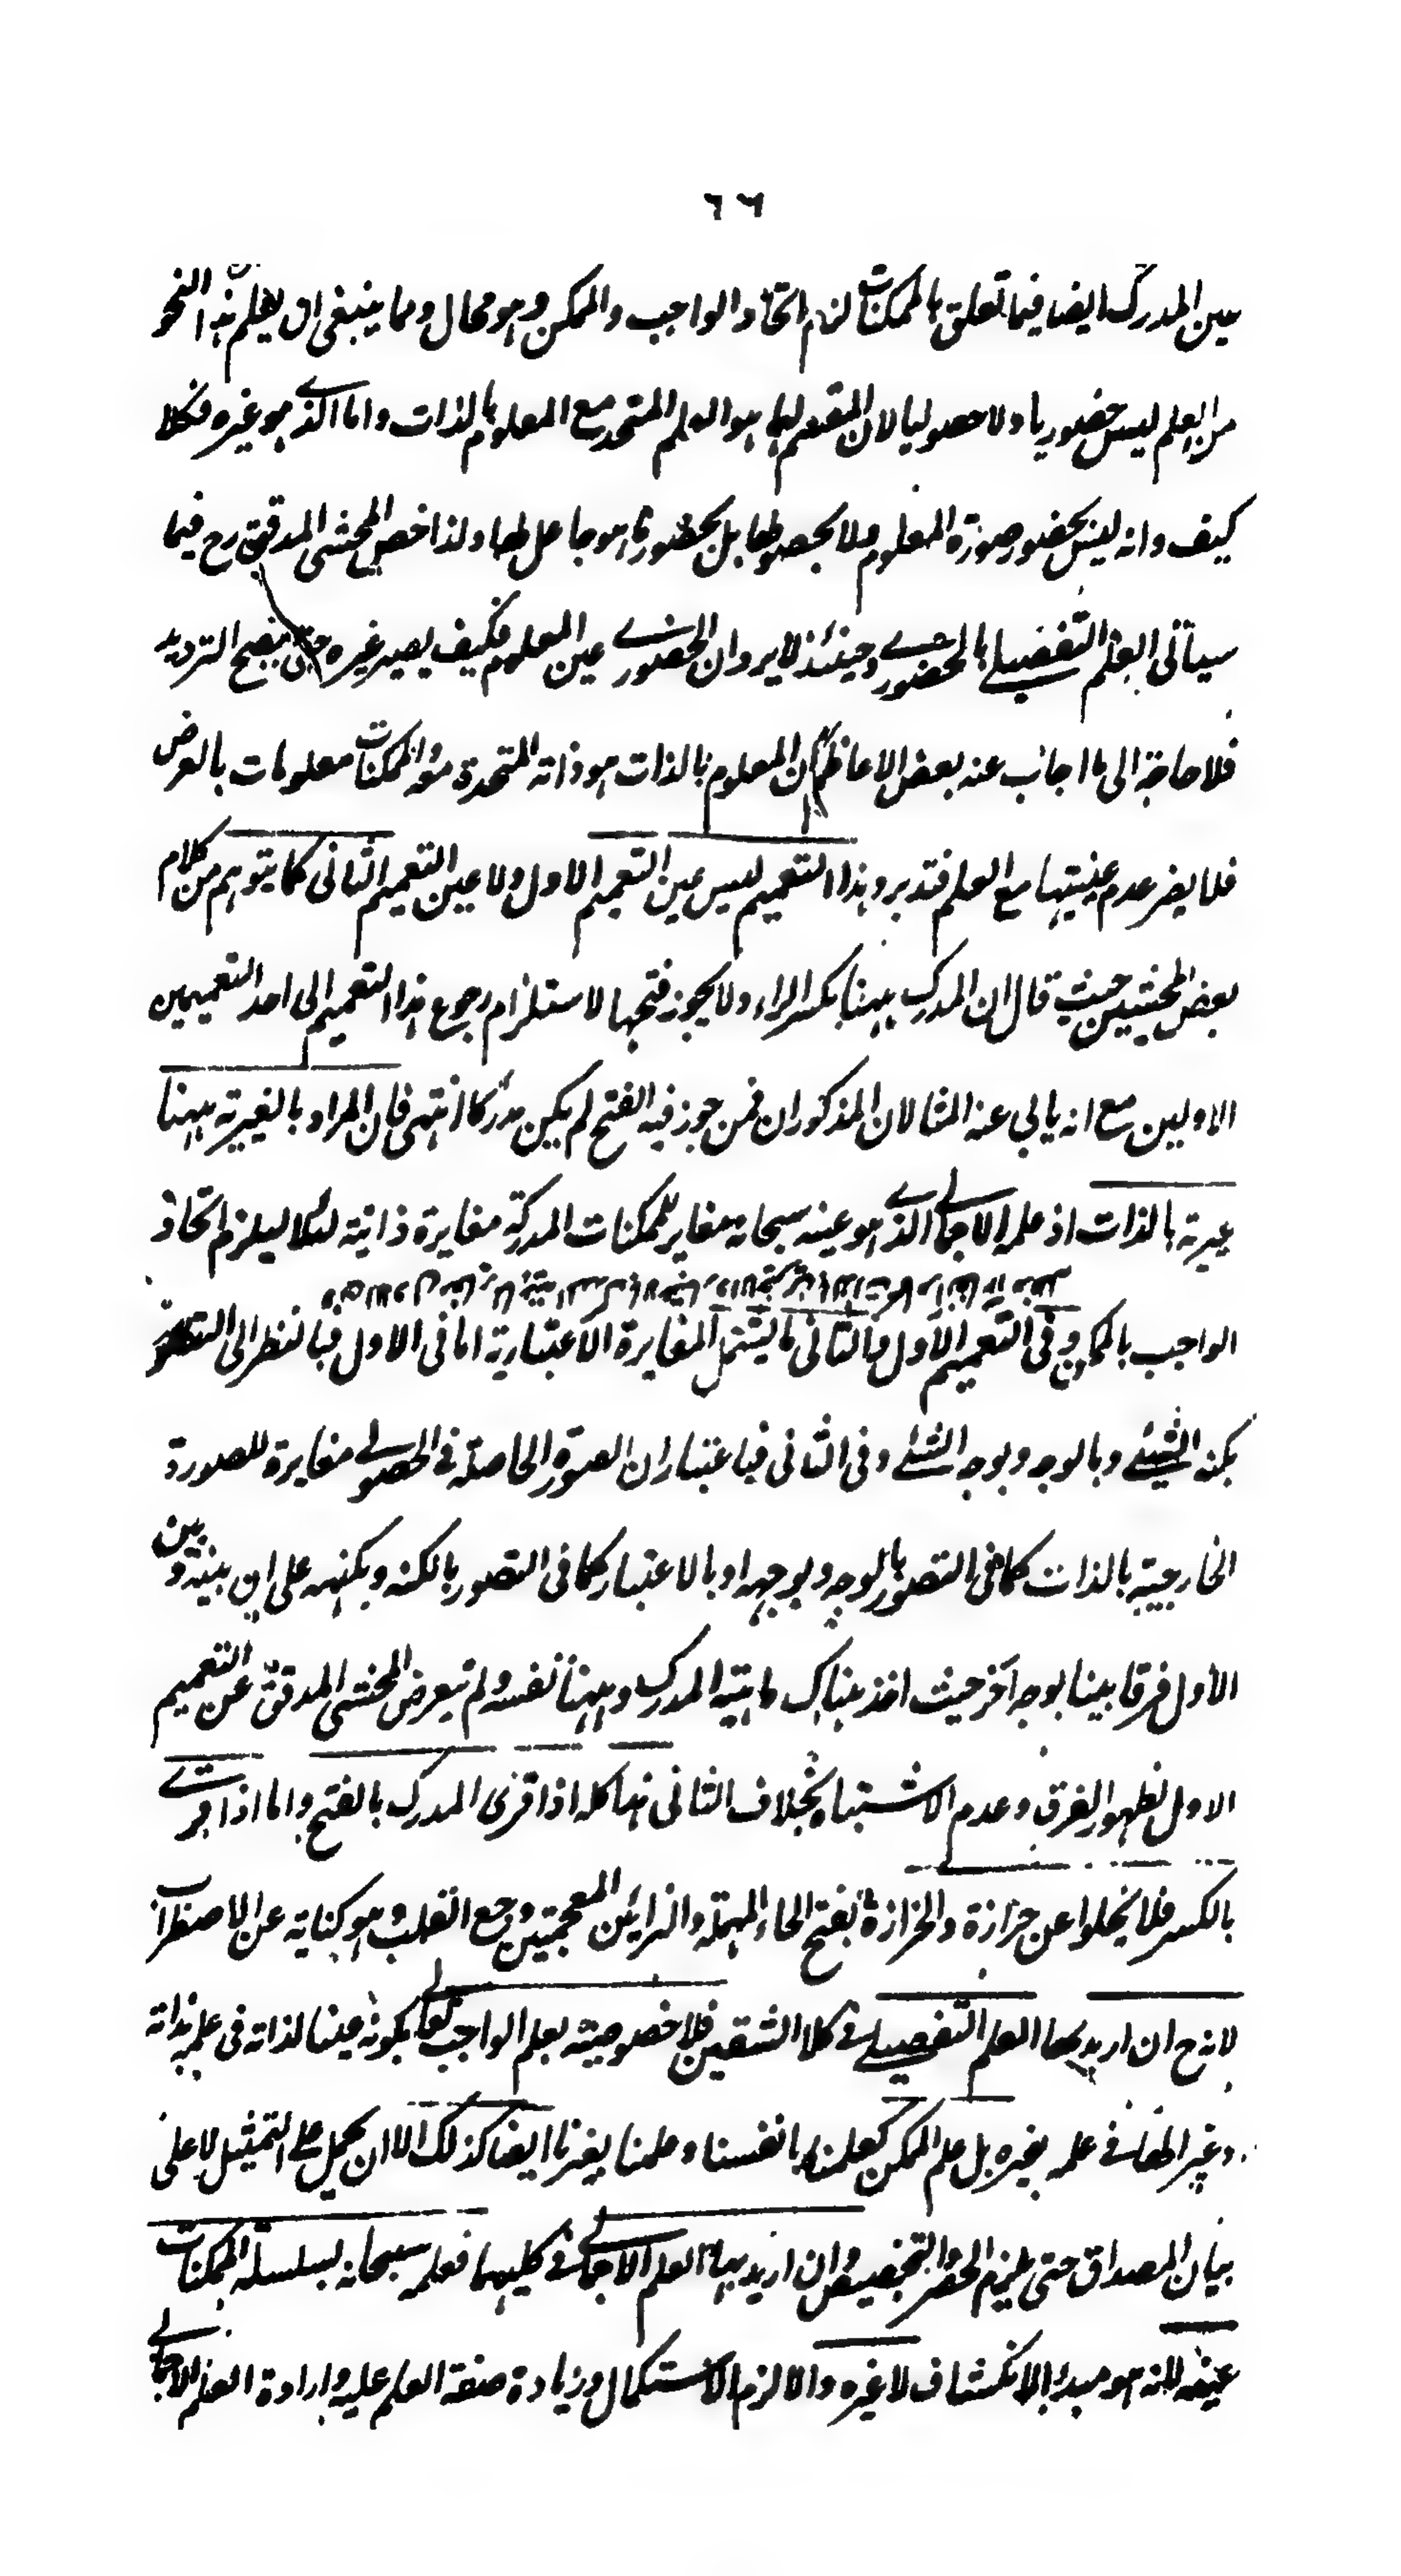 ٦٦
عين المدرك ايضا فيما تعلق بالممكنات لزم اتحاد الواجب والممكن وهو محال ومما ينبغى ان يعلم ان هذا النحو
من العلم ليس حضوريا ولا حصوليا لان المقسم لهما هو العلم المتحد مع المعلوم بالذات واما الذى هو غيره فكلا
كيف وانه ليس بحضور صورة المعلوم ولا بحصولها بل بحضور ما هو جاعل لها ولذا خص المحشى المدقق رح فيما
سيأتى العلم التفصيلى بالحضورى وحينئذ لا يرد ان الحضورى عين المعلوم فكيف يصير غيره حتى يصح الترديد
فلا حاجة الى ما اجاب عنه بعض الاعاظم ان المعلوم بالذات هو ذاته المتحدة معه والممكنات معلومات بالعرض
فلا يضر عدم عينيتها مع العلم فتدبر وهذا التعميم ليس عين التعميم الاول ولا عين التعميم الثانى كما يتوهم من كلام
بعض المحشيين حيث قال ان المدرك ههنا بكسر الراء ولا يجوز فتحها لاستلزام رجوع هذا التعميم الى احد التعميمين
الاولين مع انه يابى عنه المثالان المذكوران فمن جوز فيه الفتح لم يكن مدركا انتهى فان المراد بالغيرية ههنا
غيرية بالذات اذ علمه الاجمالى الذى هو عينه سبحانه مغاير للممكنات المدركة مغايرة ذاتية لئلا يلزم اتحاد
الواجب بالممكن وفى التعميم الاول والثانى ما يشتمل المغايرة الاعتبارية اما فى الاول فبالنظر الى التصور
بكنه الشيئ وبالوجه وبوجه الشئ وفى الثانى فباعتبار ان الصورة الحاصلة فى الحصولى مغايرة للصورة
الخارجية بالذات كما فى التصور بالوجه وبوجهه او بالاعتبار كما فى التصور بالكنه وبكنهه على ان بينه وبين
الاول فرقا بينا بوجه آخر حيث اخذ هناك ماهية المدرك وههنا نفسه ولم يتعرض المحشى المدقق عن التعميم
الاول لظهور الفرق وعدم الاشتباه بخلاف الثانى هذا كله اذا قرئ المدرك بالفتح واما اذا قرئ
بالكسر فلا يخلوا عن حزازة والحزازة بفتح الحاء المهملة والزائين المعجمتين وجع القلب وهو كناية عن الاضطراب
لانه ح ان اريد بهما العلم التفصيلى فى كلا الشقين فلا خصوصية بعلم الواجب تعالى بكونه عينا لذاته فى علمه بذاته
وغير الها فى علمه بغيره بل علم الممكن كعلمنا بانفسنا وعلمنا بغيرنا ايضا كذلك الا ان يحمل على التمثيل لا على
بيان المصداق حتى يلزم الحصر والتخصيص وان اريد بهما العلم الاجمالى فى كليهما فعلمه سبحانه بسلسلة الممكنات
عينه لانه هو مبدأ الانكشاف لا غيره والا لزم الاستكمال وزيادة صفة العلم عليه وارادة العلم الاجمالى